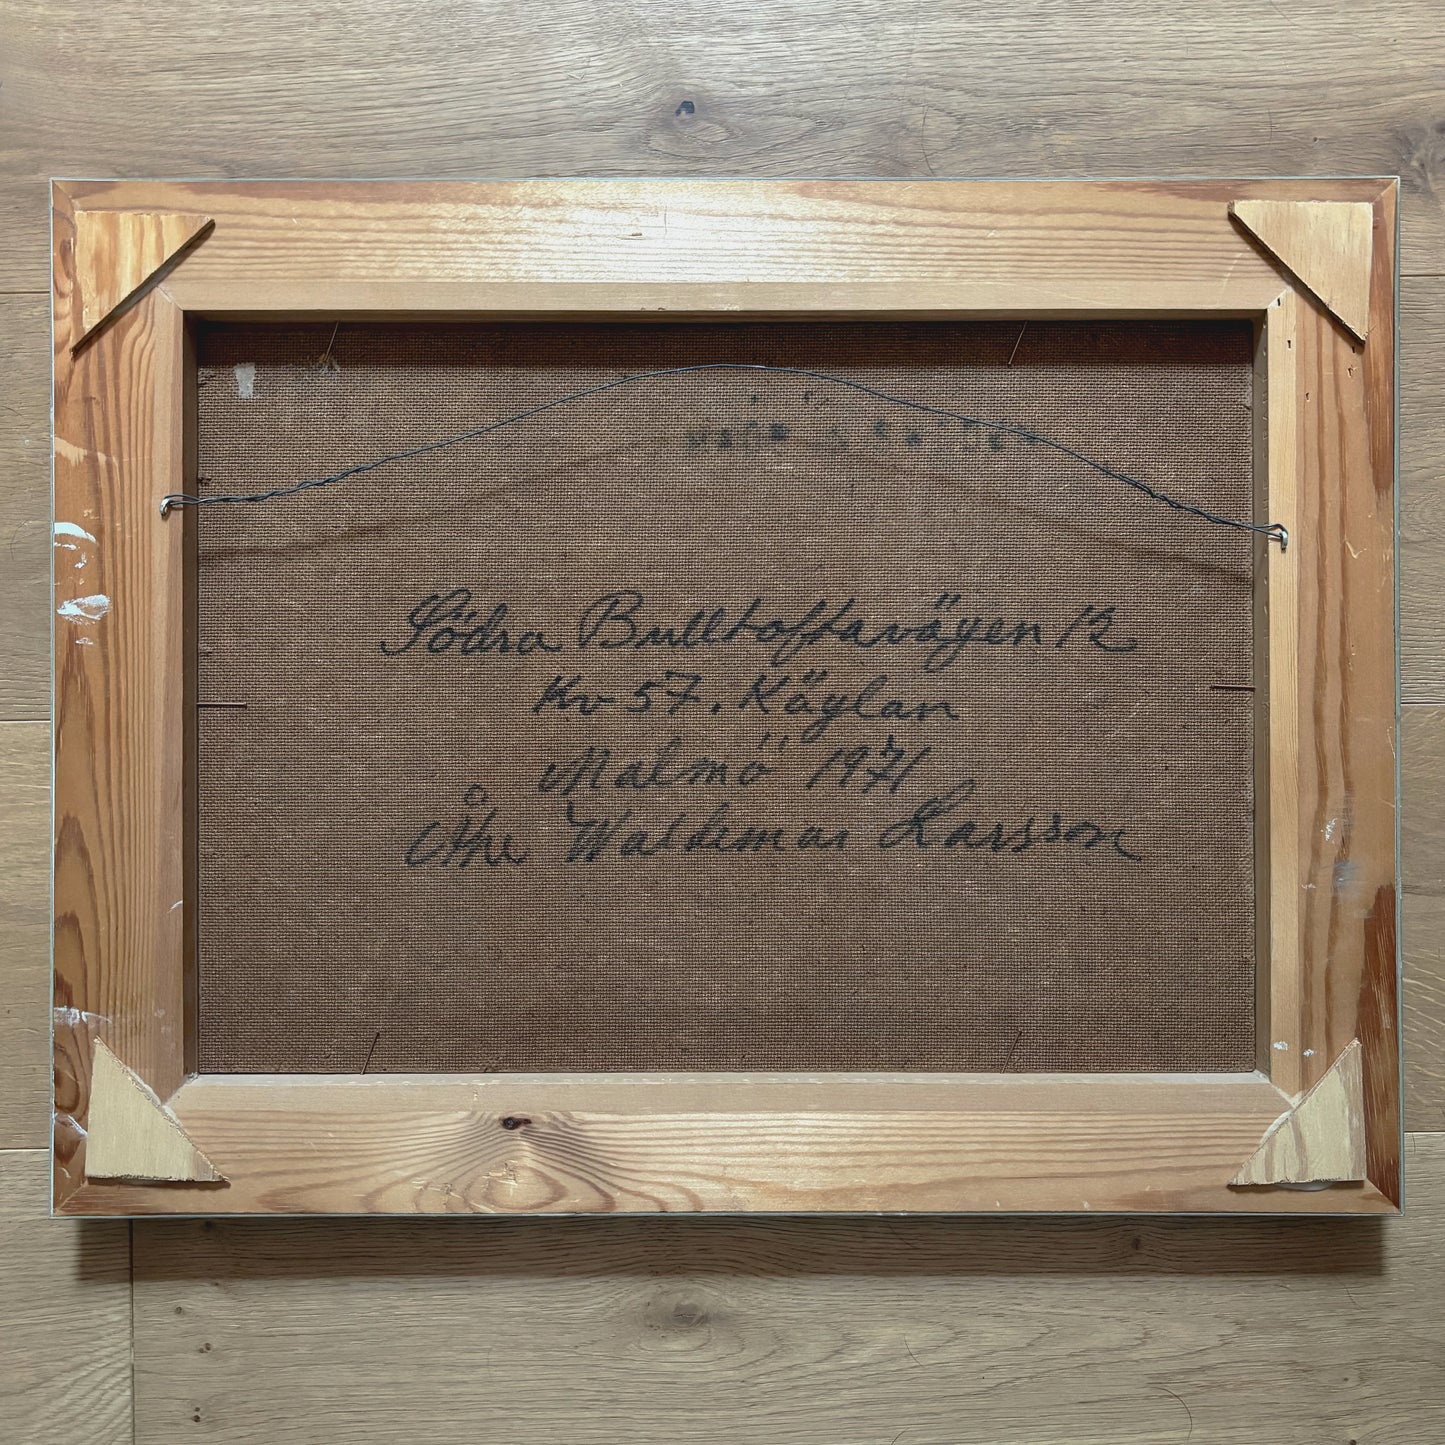 Södra Bulltoftavägen 12
Kv 57. Käglan
Malmö 1971
Åke Waldemar Larsson